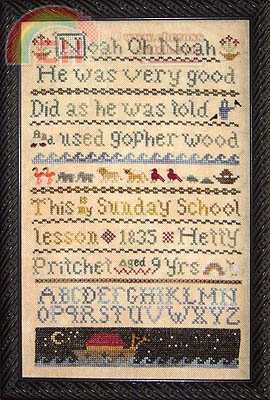 Noah Oh Noah
He was very good
Did as he was told
And used gopher wood
This is my Sunday School
lesson 1835 Hetty
Pritchet aged 9 Yrs
ABCDEFGHIJKLMN
OPQRSTUVWXYZ